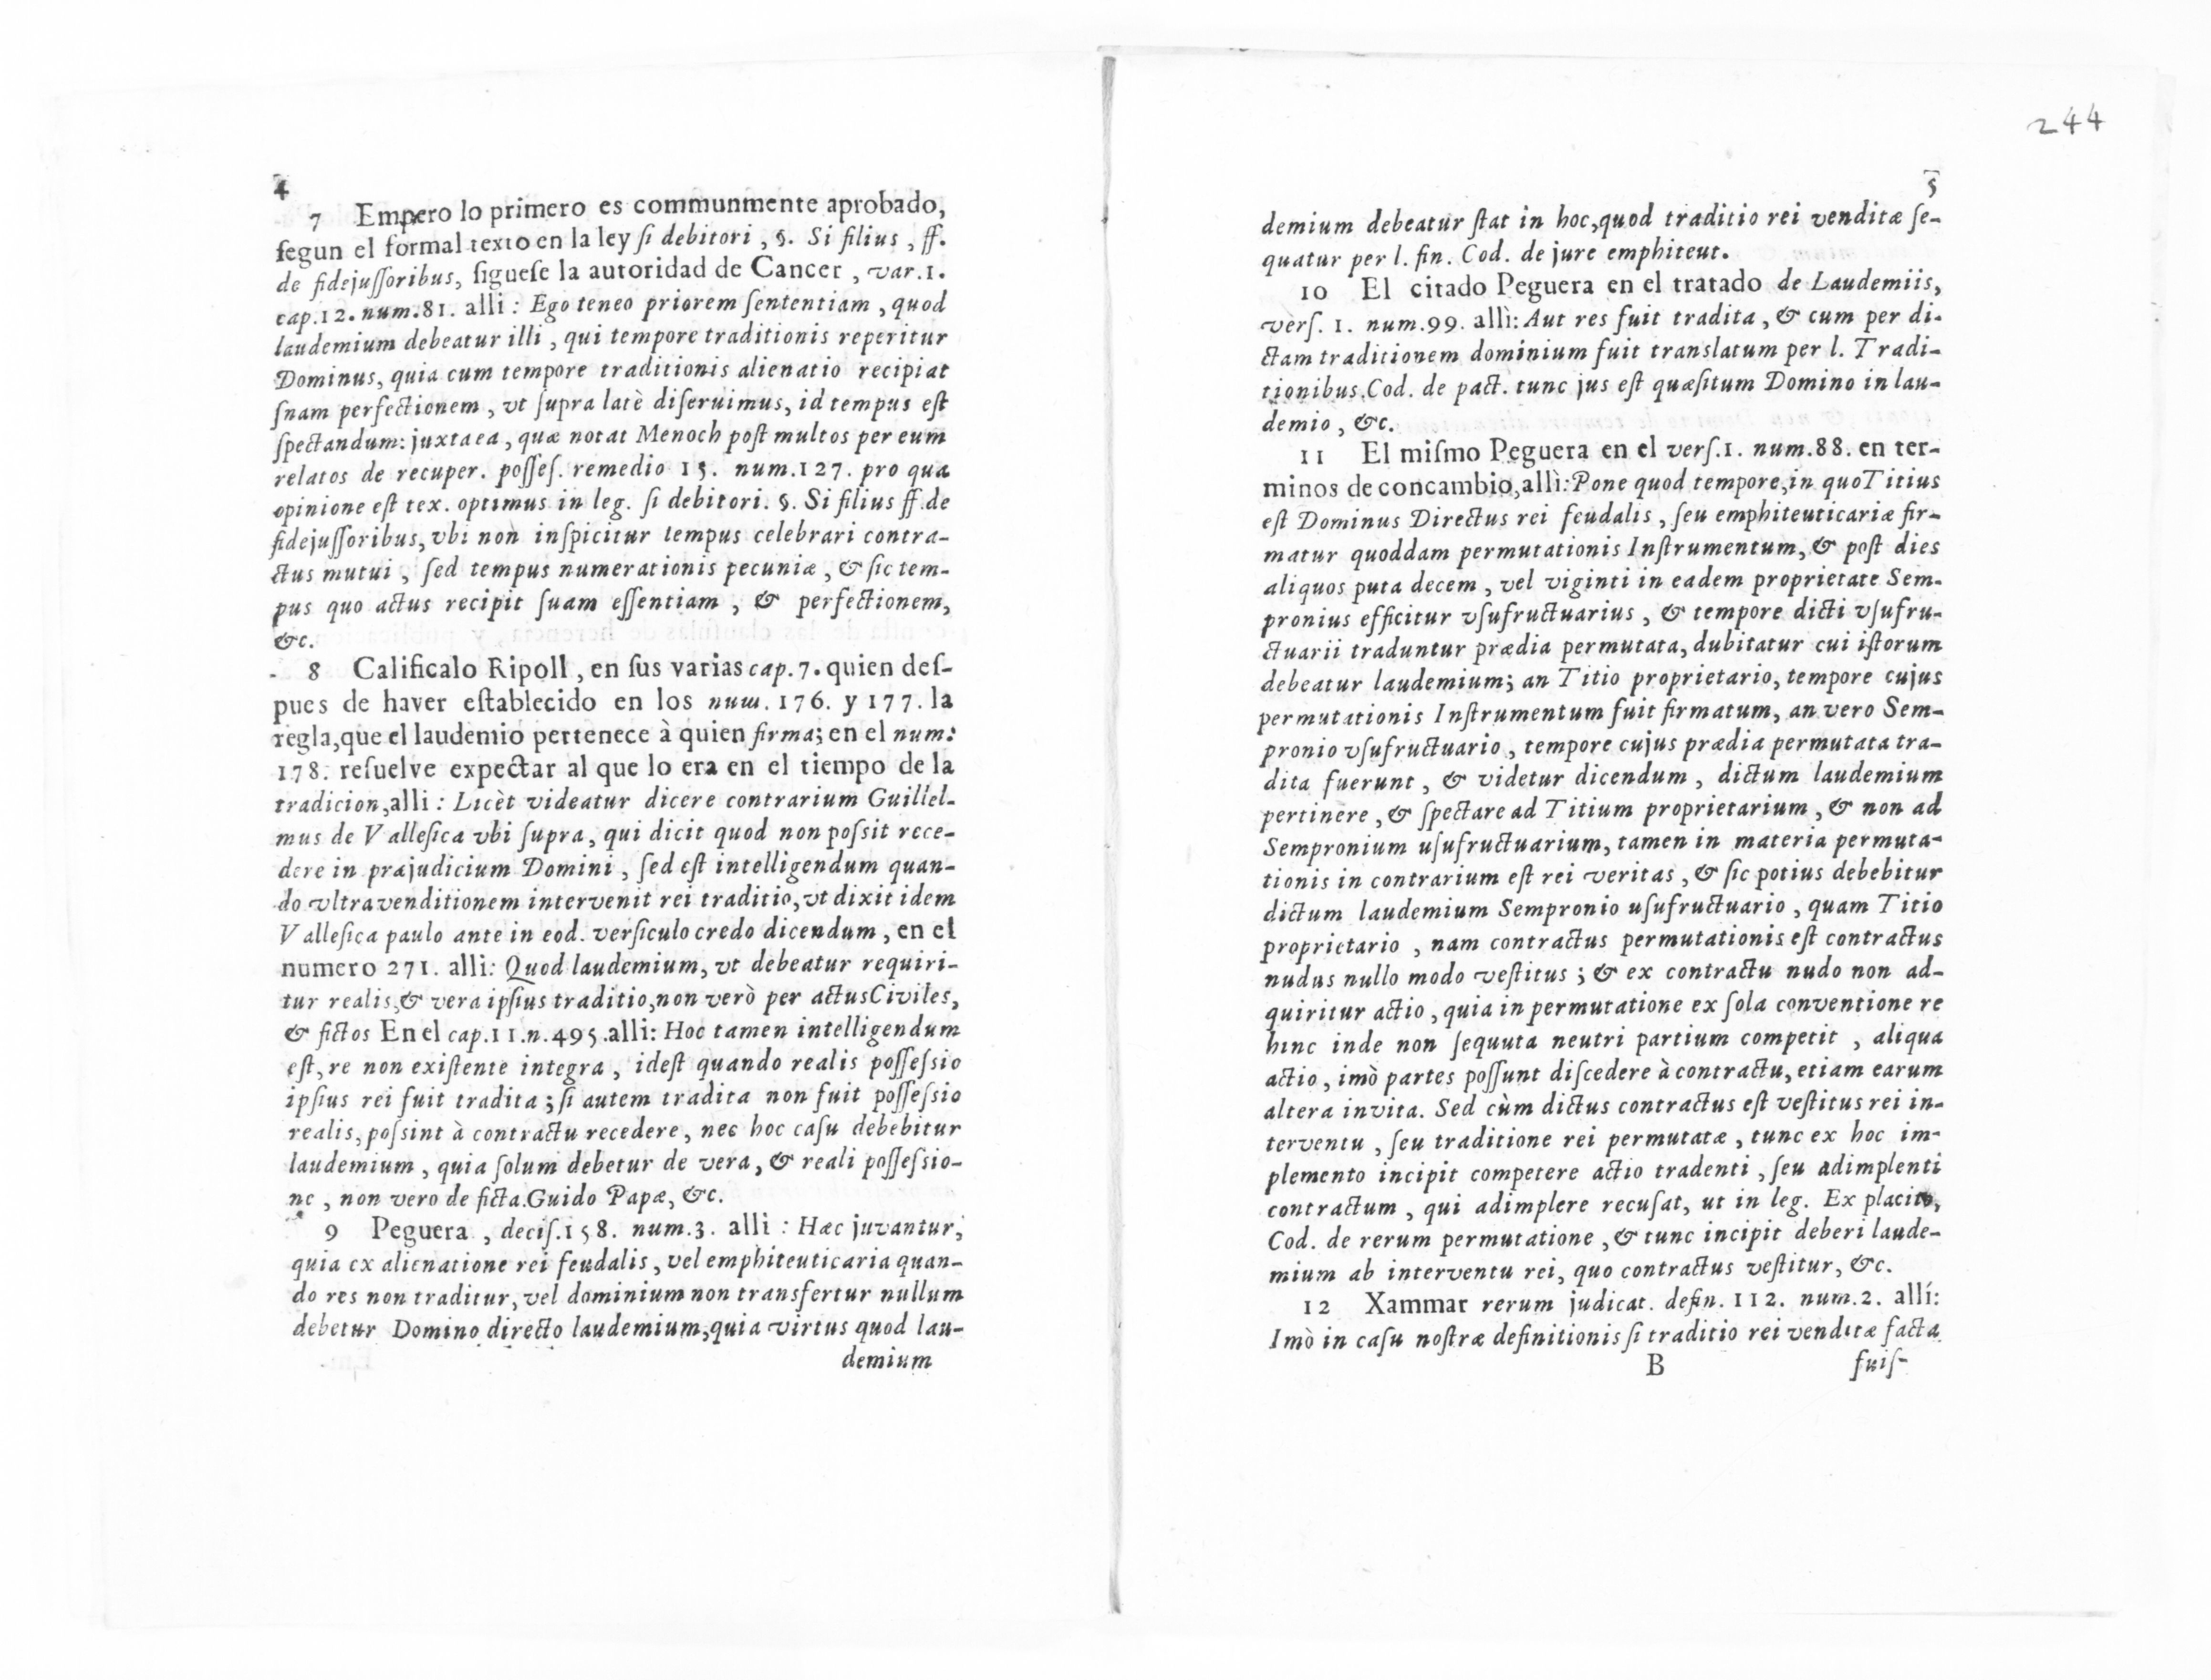 4
7 Empero lo primero es communmente aprobado,
ſegun el formal texto en la ley ſi debitori, §. Si filius, ff.
de fidejuſſoribus, ſigueſe la autoridad de Cancer, var.1.
cap.12. num.81. alli: Ego teneo priorem ſententiam, quod
laudemium debeatur illi, qui tempore traditionis reperitur
Dominus, quia cum tempore traditionis alienatio recipiat
ſnam perfectionem, vt ſupra latè diſeruimus, id tempus eſt
ſpectandum: juxta ea, quæ notat Menoch poſt multos per eum
relatos de recuper. poſſeſ. remedio 15. num.127. pro qua
opinione eſt tex. optimus in leg. ſi debitori. §. Si filius ff.de
fidejuſſoribus, vbi non inſpicitur tempus celebrari contra-
ctus mutui, ſed tempus numerationis pecuniæ, & ſic tem-
pus quo actus recipit ſuam eſſentiam, & perfectionem,
&c.
8 Calificalo Ripoll, en ſus varias cap.7. quien deſ-
pues de haver eſtablecido en los num. 176. y 177. la
regla, que el laudemio pertenece à quien firma; en el num:
178. reſuelve expectar al que lo era en el tiempo de la
tradicion, alli: Licèt videatur dicere contrarium Guillel-
mus de Valleſica vbi ſupra, qui dicit quod non poſsit rece-
dere in præjudicium Domini, ſed eſt intelligendum quan-
do vltra venditionem intervenit rei traditio, vt dixit idem
Valleſica paulo ante in eod. verſiculo credo dicendum, en el
numero 271. alli: Quod laudemium, vt debeatur requiri-
tur realis, & vera ipſius traditio, non verò per actus Civiles,
& fictos En el cap.11.n.495.alli: Hoc tamen intelligendum
eſt, re non exiſtente integra, ideſt quando realis poſſeſsio
ipſius rei fuit tradita; ſi autem tradita non fuit poſſeſsio
realis, poſsint à contractu recedere, nec hoc caſu debebitur
laudemium, quia ſolum debetur de vera, & reali poſſeſsio-
ne, non vero de ficta.Guido Papæ, &c.
9 Peguera, deciſ.158. num.3. alli: Hæc juvantur,
quia ex alienatione rei feudalis, vel emphiteuticaria quan-
do res non traditur, vel dominium non transfertur nullum
debetur Domino directo laudemium, quia virtus quod lau-
demium
244
5
demium debeatur ſtat in hoc, quod traditio rei venditæ ſe-
quatur per l. fin. Cod. de jure emphiteut.
10 El citado Peguera en el tratado de Laudemiis,
vèrſ. 1. num.99. allì: Aut res fuit tradita, & cum per di-
ctam traditionem dominium fuit translatum per l. Tradi-
tionibus, Cod. de pact. tunc jus eſt quæſitum Domino in lau-
demio, &c.
11 El miſmo Peguera en el verſ.1. num.88. en ter-
minos de concambio, allì: Pone quod tempore, in quo Titius
eſt Dominus Directus rei feudalis, ſeu emphiteuticariæ fir-
matur quoddam permutationis Inſtrumentum, & poſt dies
aliquos puta decem, vel viginti in eadem proprietate Sem-
pronius efficitur vſufructuarius, & tempore dicti vſufru-
ctuarii traduntur prædia permutata, dubitatur cui iſtorum
debeatur laudemium; an Titio proprietario, tempore cujus
permutationis Inſtrumentum fuit firmatum, an vero Sem-
pronio vſufructuario, tempore cujus prædia permutata tra-
dita fuerunt, & videtur dicendum, dictum laudemium
pertinere, & ſpectare ad Titium proprietarium, & non ad
Sempronium uſufructuarium, tamen in materia permuta-
tionis in contrarium eſt rei veritas, & ſic potius debebitur
dictum laudemium Sempronio uſufructuario, quam Titio
proprietario, nam contractus permutationis eſt contractus
nudus nullo modo veſtitus; & ex contractu nudo non ad-
quiritur actio, quia in permutatione ex ſola conventione re
hinc inde non ſequuta neutri partium competit, aliqua
actio, imò partes poſſunt diſcedere à contractu, etiam earum
altera invita. Sed cùm dictus contractus eſt veſtitus rei in-
terventu, ſeu traditione rei permutatæ, tunc ex hoc im-
plemento incipit competere actio tradenti, ſeu adimplenti
contractum, qui adimplere recuſat, ut in leg. Ex placito,
Cod. de rerum permutatione, & tunc incipit deberi laude-
mium ab interventu rei, quo contractus veſtitur, &c.
12 Xammar rerum judicat. defin. 112. num.2. allí:
Imò in caſu noſtræ definitionis ſi traditio rei venditæ facta
B fuiſ-